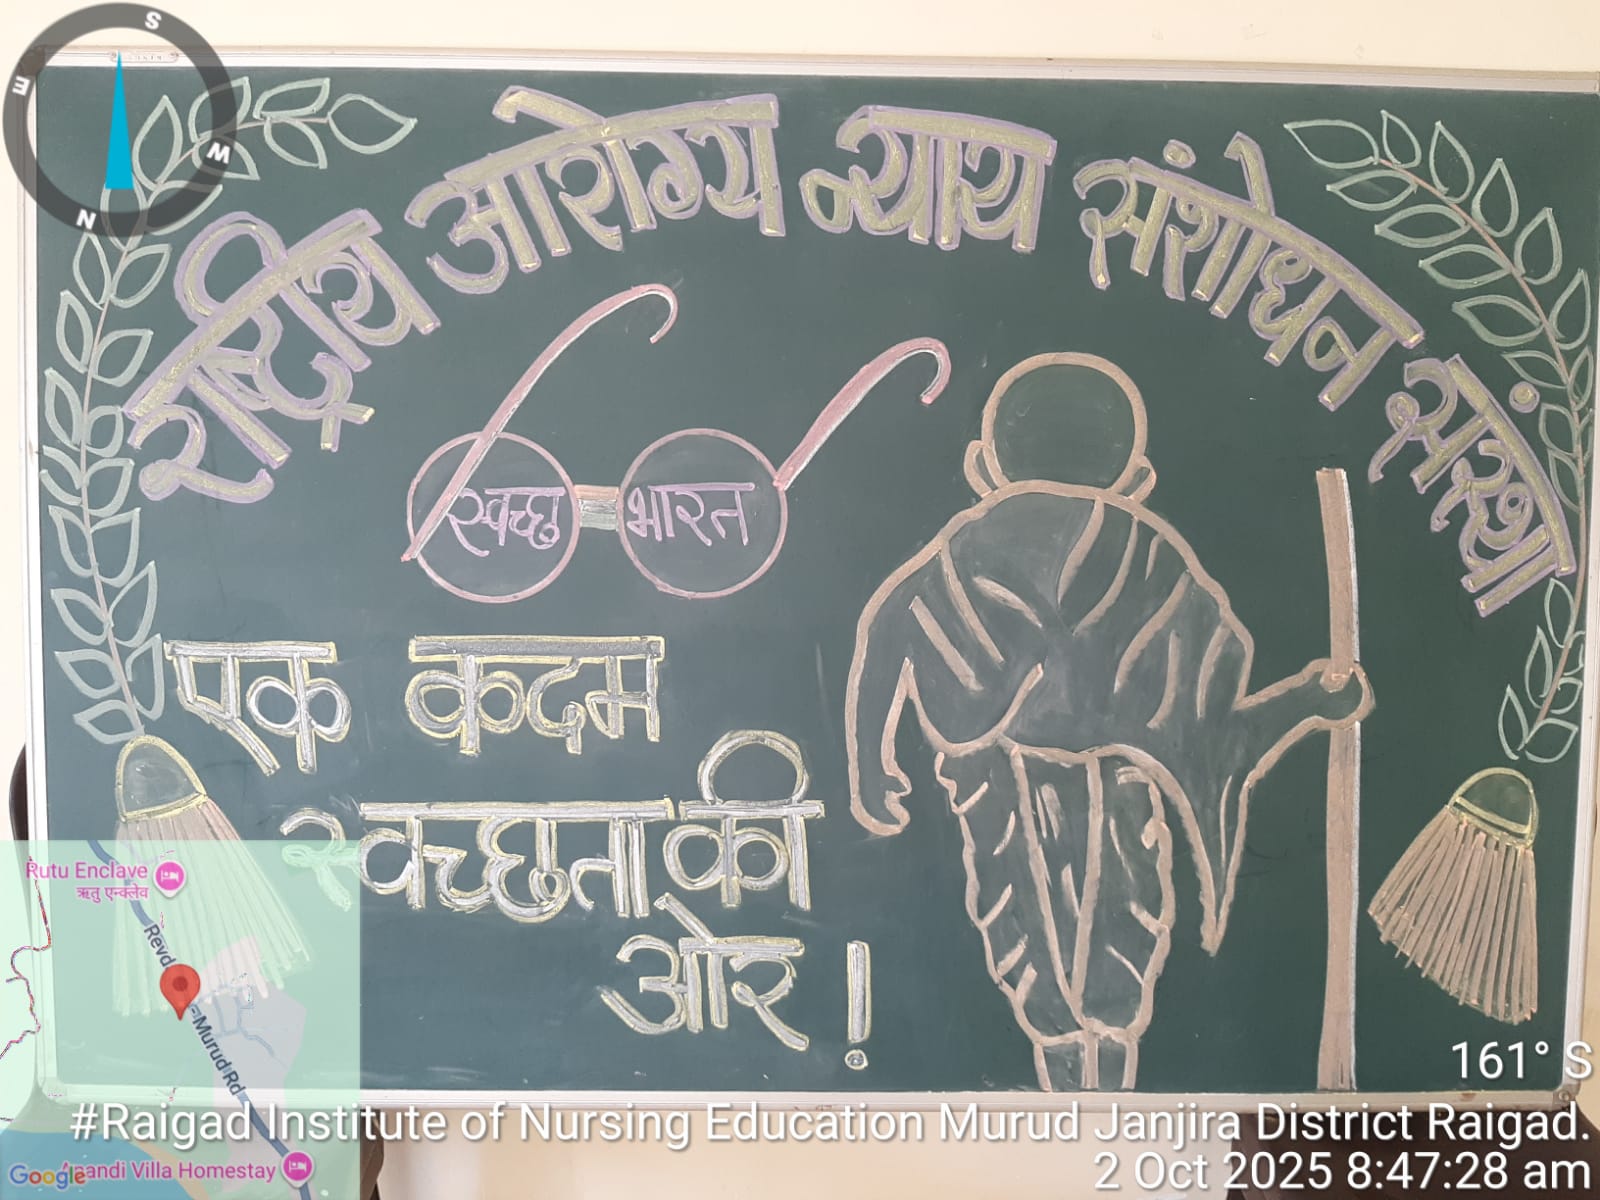 राष्ट्रीय आरोग्य न्याय संशोधन संस्था
स्वच्छ भारत
एक कदम
स्वच्छता की
ओर !
S
E
W
N
Rutu Enclave
ऋतु एन्क्लेव
Revd
Murud Rd
Anandi Villa Homestay
Google
161° S
#Raigad Institute of Nursing Education Murud Janjira District Raigad.
2 Oct 2025 8:47:28 am